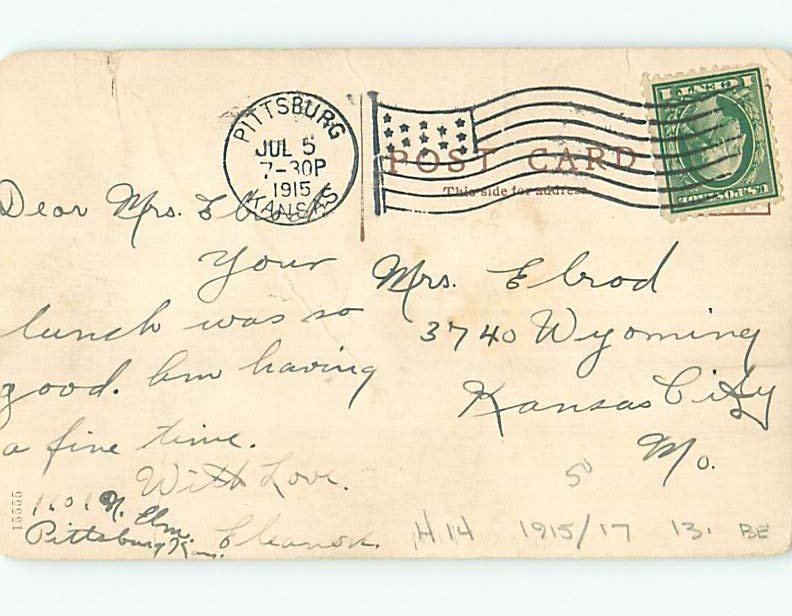 PITTSBURG
JUL 5
7-30P
1915
KANSAS
1 CENT 1
U.S. POSTAGE
POST CARD
This side for address
Dear Mrs.
Your
lunch was so
good. Am having
a fine time.
With Love.
Eleanor.
1601 N. Elm.
Pittsburg Kan.
15555
Mrs. Elrod
3740 Wyoming
Kansas City
Mo.
50
H14 1915/17 13. BE